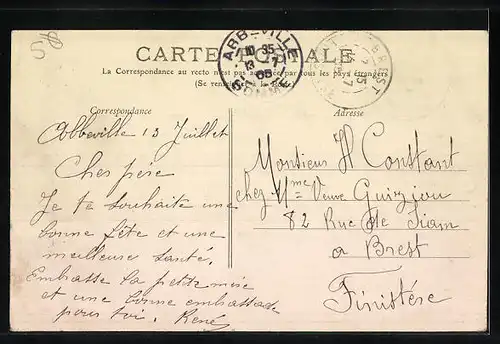 CARTE POSTALE
La Correspondance au recto n'est pas acceptée par tous les pays étrangers
(Se renseigner à la Poste)
ABBEVILLE
10 35
13 -7
SOMME
BREST
Correspondance
Abbeville 13 Juillet
Cher père
Je te souhaite une
bonne fête et une
meilleure santé.
Embrasse la petite mère
et une bonne embrassade
pour toi. René
Adresse
Monsieur H Constant
chez Mme Veuve Guiziou
82 Rue de Siam
a Brest
Finistère